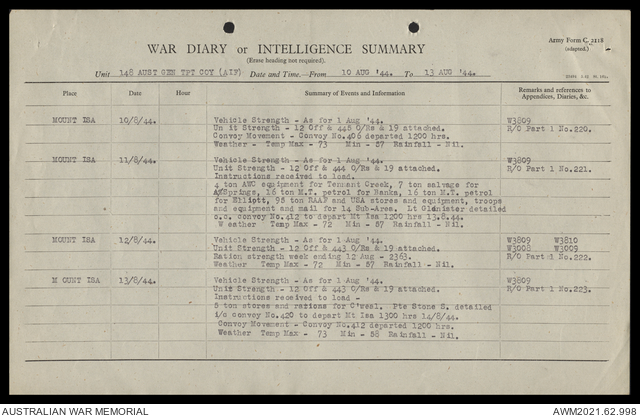 Army Form C. 2118
WAR DIARY or INTELLIGENCE SUMMARY
(adapted.)
(Erase heading not required).
Unit 148 AUST GEN TPT COY (AIF) Date and Time.—From 10 AUG '44. To 13 AUG '44.
Place Date Hour Summary of Events and Information Remarks and references to Appendices, Diaries, &c.
MOUNT ISA 10/8/44. Vehicle Strength - As for 1 Aug '44. W3809
Unit Strength - 12 Off & 448 O/Rs & 19 attached. R/O Part 1 No.220.
Convoy Movement - Convoy No.406 departed 1200 hrs.
Weather - Temp Max - 73 Min - 57 Rainfall - Nil.
MOUNT ISA 11/8/44. Vehicle Strength - As for 1 Aug '44. W3809
Unit Strength - 12 Off & 444 O/Rs & 19 attached. R/O Part 1 No.221.
Instructions received to load.
4 ton AWC equipment for Tennant Creek, 7 ton salvage for
A/Springs, 16 ton M.T. petrol for Banka, 16 ton M.T. petrol
for Elliott, 95 ton RAAF and USA stores and equipment, troops
and equipment and mail for 14 Sub-Area. Lt Glenister detailed
o.c. convoy No.412 to depart Mt Isa 1200 hrs 13.8.44.
W eather Temp Max - 72 Min - 57 Rainfall - Nil.
MOUNT ISA 12/8/44. Vehicle Strength - As for 1 Aug '44. W3809 W3810
Unit Strength - 12 Off & 443 O/Rs & 19 attached. W3008 W3009
Ration strength week ending 12 Aug - 2363. R/O Part 1 No.222.
Weather Temp Max - 72 Min - 57 Rainfall - Nil.
M OUNT ISA 13/8/44. Vehicle Strength - As for 1 Aug '44. W3809
Unit Strength - 12 Off & 443 O/Rs & 19 attached. R/O Part 1 No.223.
Instructions received to load -
5 ton stores and rations for C'weal. Pte Stone S. detailed
i/c convoy No.420 to depart Mt Isa 1300 hrs 14/8/44.
Convoy Movement - Convoy No.412 departed 1200 hrs.
Weather Temp Max - 73 Min - 58 Rainfall - Nil.
AUSTRALIAN WAR MEMORIAL AWM2021.62.998